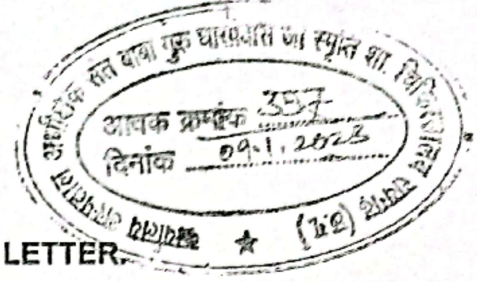 कार्यालय अस्पताल अधीक्षक संत बाबा गुरु घासीदास जी स्मृति शा. चिकित्सालय रायगढ़ (छ.ग.)
आवक क्रमांक 357
दिनांक 09.1.2023
LETTER.